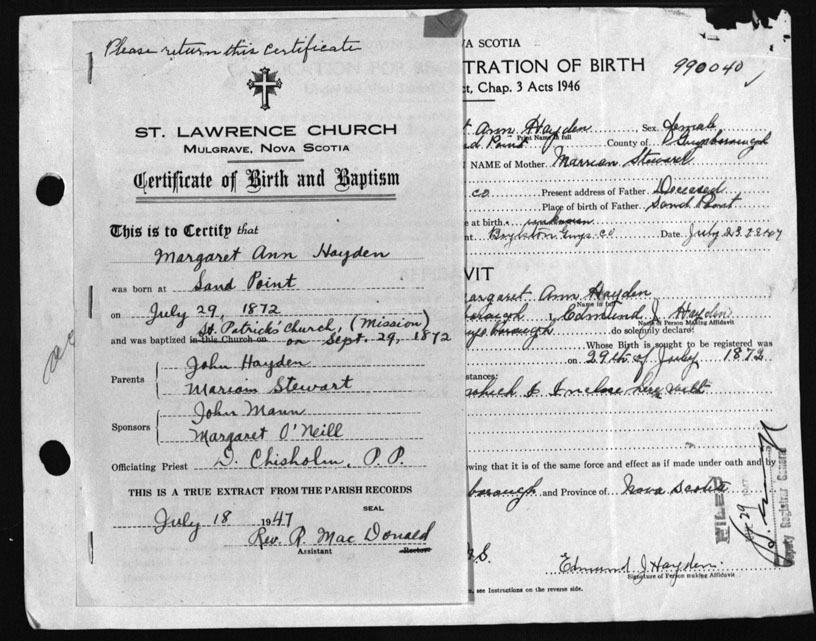 Please return this certificate
ST. LAWRENCE CHURCH
MULGRAVE, NOVA SCOTIA
Certificate of Birth and Baptism
This is to Certify that
Margaret Ann Hayden
was born at Sand Point
on July 29, 1872
St. Patricks' Church, (Mission)
and was baptized in this Church on on Sept. 29, 1872
Parents John Hayden
Marion Stewart
Sponsors John Mann
Margaret O'Neill
Officiating Priest D. Chisholm, P.P.
THIS IS A TRUE EXTRACT FROM THE PARISH RECORDS
SEAL
July 18 1947
Rev. R. Mac Donald
Assistant Rector
VA SCOTIA
TRATION OF BIRTH 990040
ct, Chap. 3 Acts 1946
t Ann Hayden Sex Female
Print Name in full
nd Point County of Guysborough
NAME of Mother Marrian Steward
co Present address of Father Deceased
Place of birth of Father Sand Point
e at birth unknown
nt Boylston Guys. Co Date July 23
VIT
argaret Ann Hayden
Name in full
borough I, Edmund J Hayden
Name in Person Making Affidavit
uysborough do solemnly declare:
Whose Birth is sought to be registered was
on 29th of July 1872
stances:
which I Inclose here with
wing that it is of the same force and effect as if made under oath and by
borough and Province of Nova Scotia
N.S.
Edmund J Hayden.
Signature of Person making Affidavit
m, see Instructions on the reverse side.
FILED
29
Deputy Registrar General